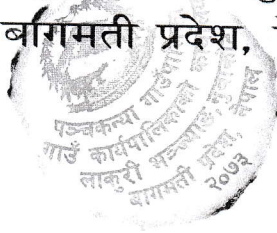 बागमती प्रदेश,
पञ्चकन्या गाउँपालिका
गाउँ कार्यपालिकाको
लाकुरी भञ्ज्याङ,
बागमती प्रदेश, नेपाल
२०७३